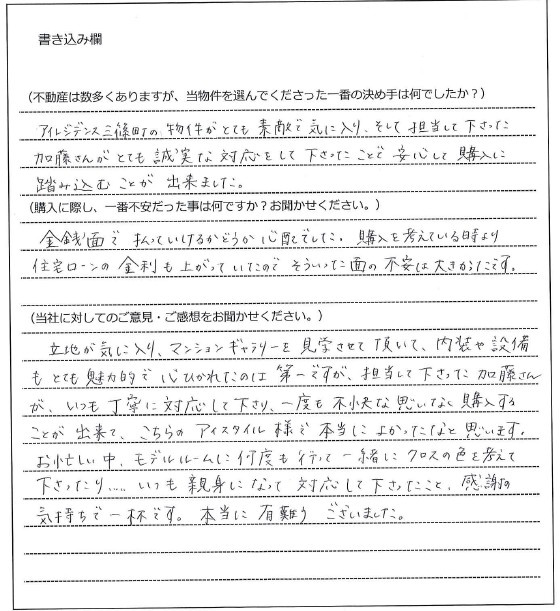 書き込み欄
(不動産は数多くありますが、当物件を選んでくださった一番の決め手は何でしたか？)
アイレジデンス三篠町の物件がとても素敵で気に入り、そして担当して下さった
加藤さんがとても誠実な対応をして下さったことで安心して購入に
踏み込むことが出来ました。
(購入に際し、一番不安だった事は何ですか？お聞かせください。)
金銭面で払っていけるかどうか心配でした。購入を考えている時より
住宅ローンの金利も上がっていたのでそういった面の不安は大きかったです。
(当社に対してのご意見・ご感想をお聞かせください。)
立地が気に入り、マンションギャラリーを見学させて頂いて、内装や設備
もとても魅力的で心ひかれたのは第一ですが、担当して下さった加藤さん
が、いつも丁寧に対応して下さり、一度も不快な思いなく購入する
ことが出来て、こちらのアイスタイル様で本当によかったなと思います。
お忙しい中、モデルルームに何度も行って一緒にクロスの色を考えて
下さったり……いつも親身になって対応して下さったこと、感謝の
気持ちで一杯です。本当に有難うございました。